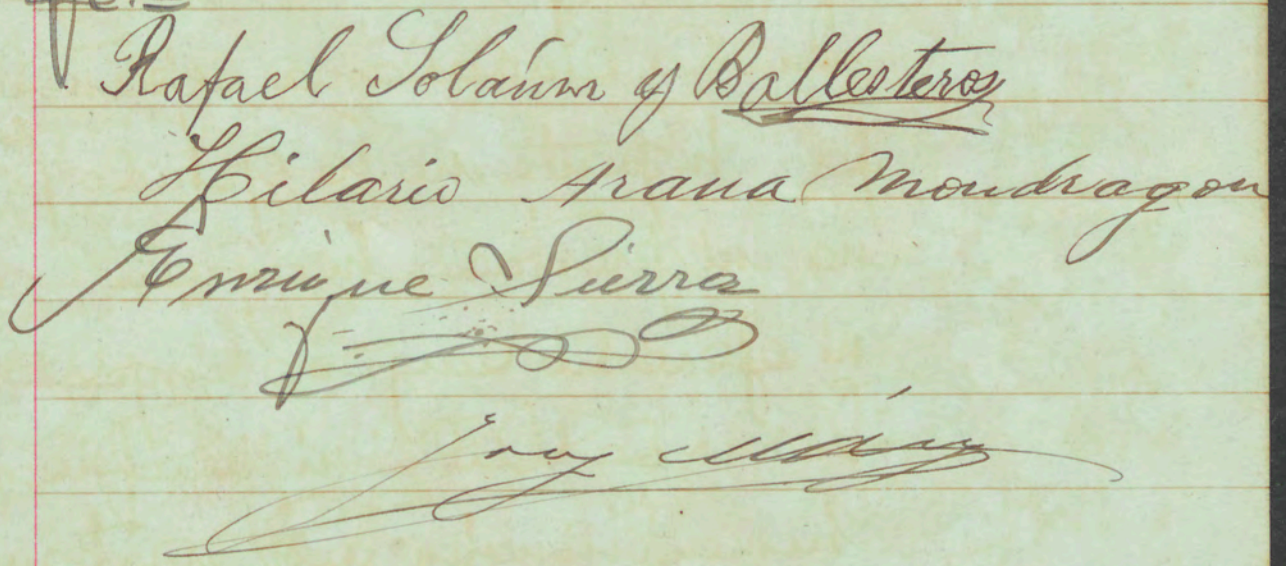 Rafael Solaúnn y Ballesteros
Hilario Arana Mondragon
Enrique Sierra